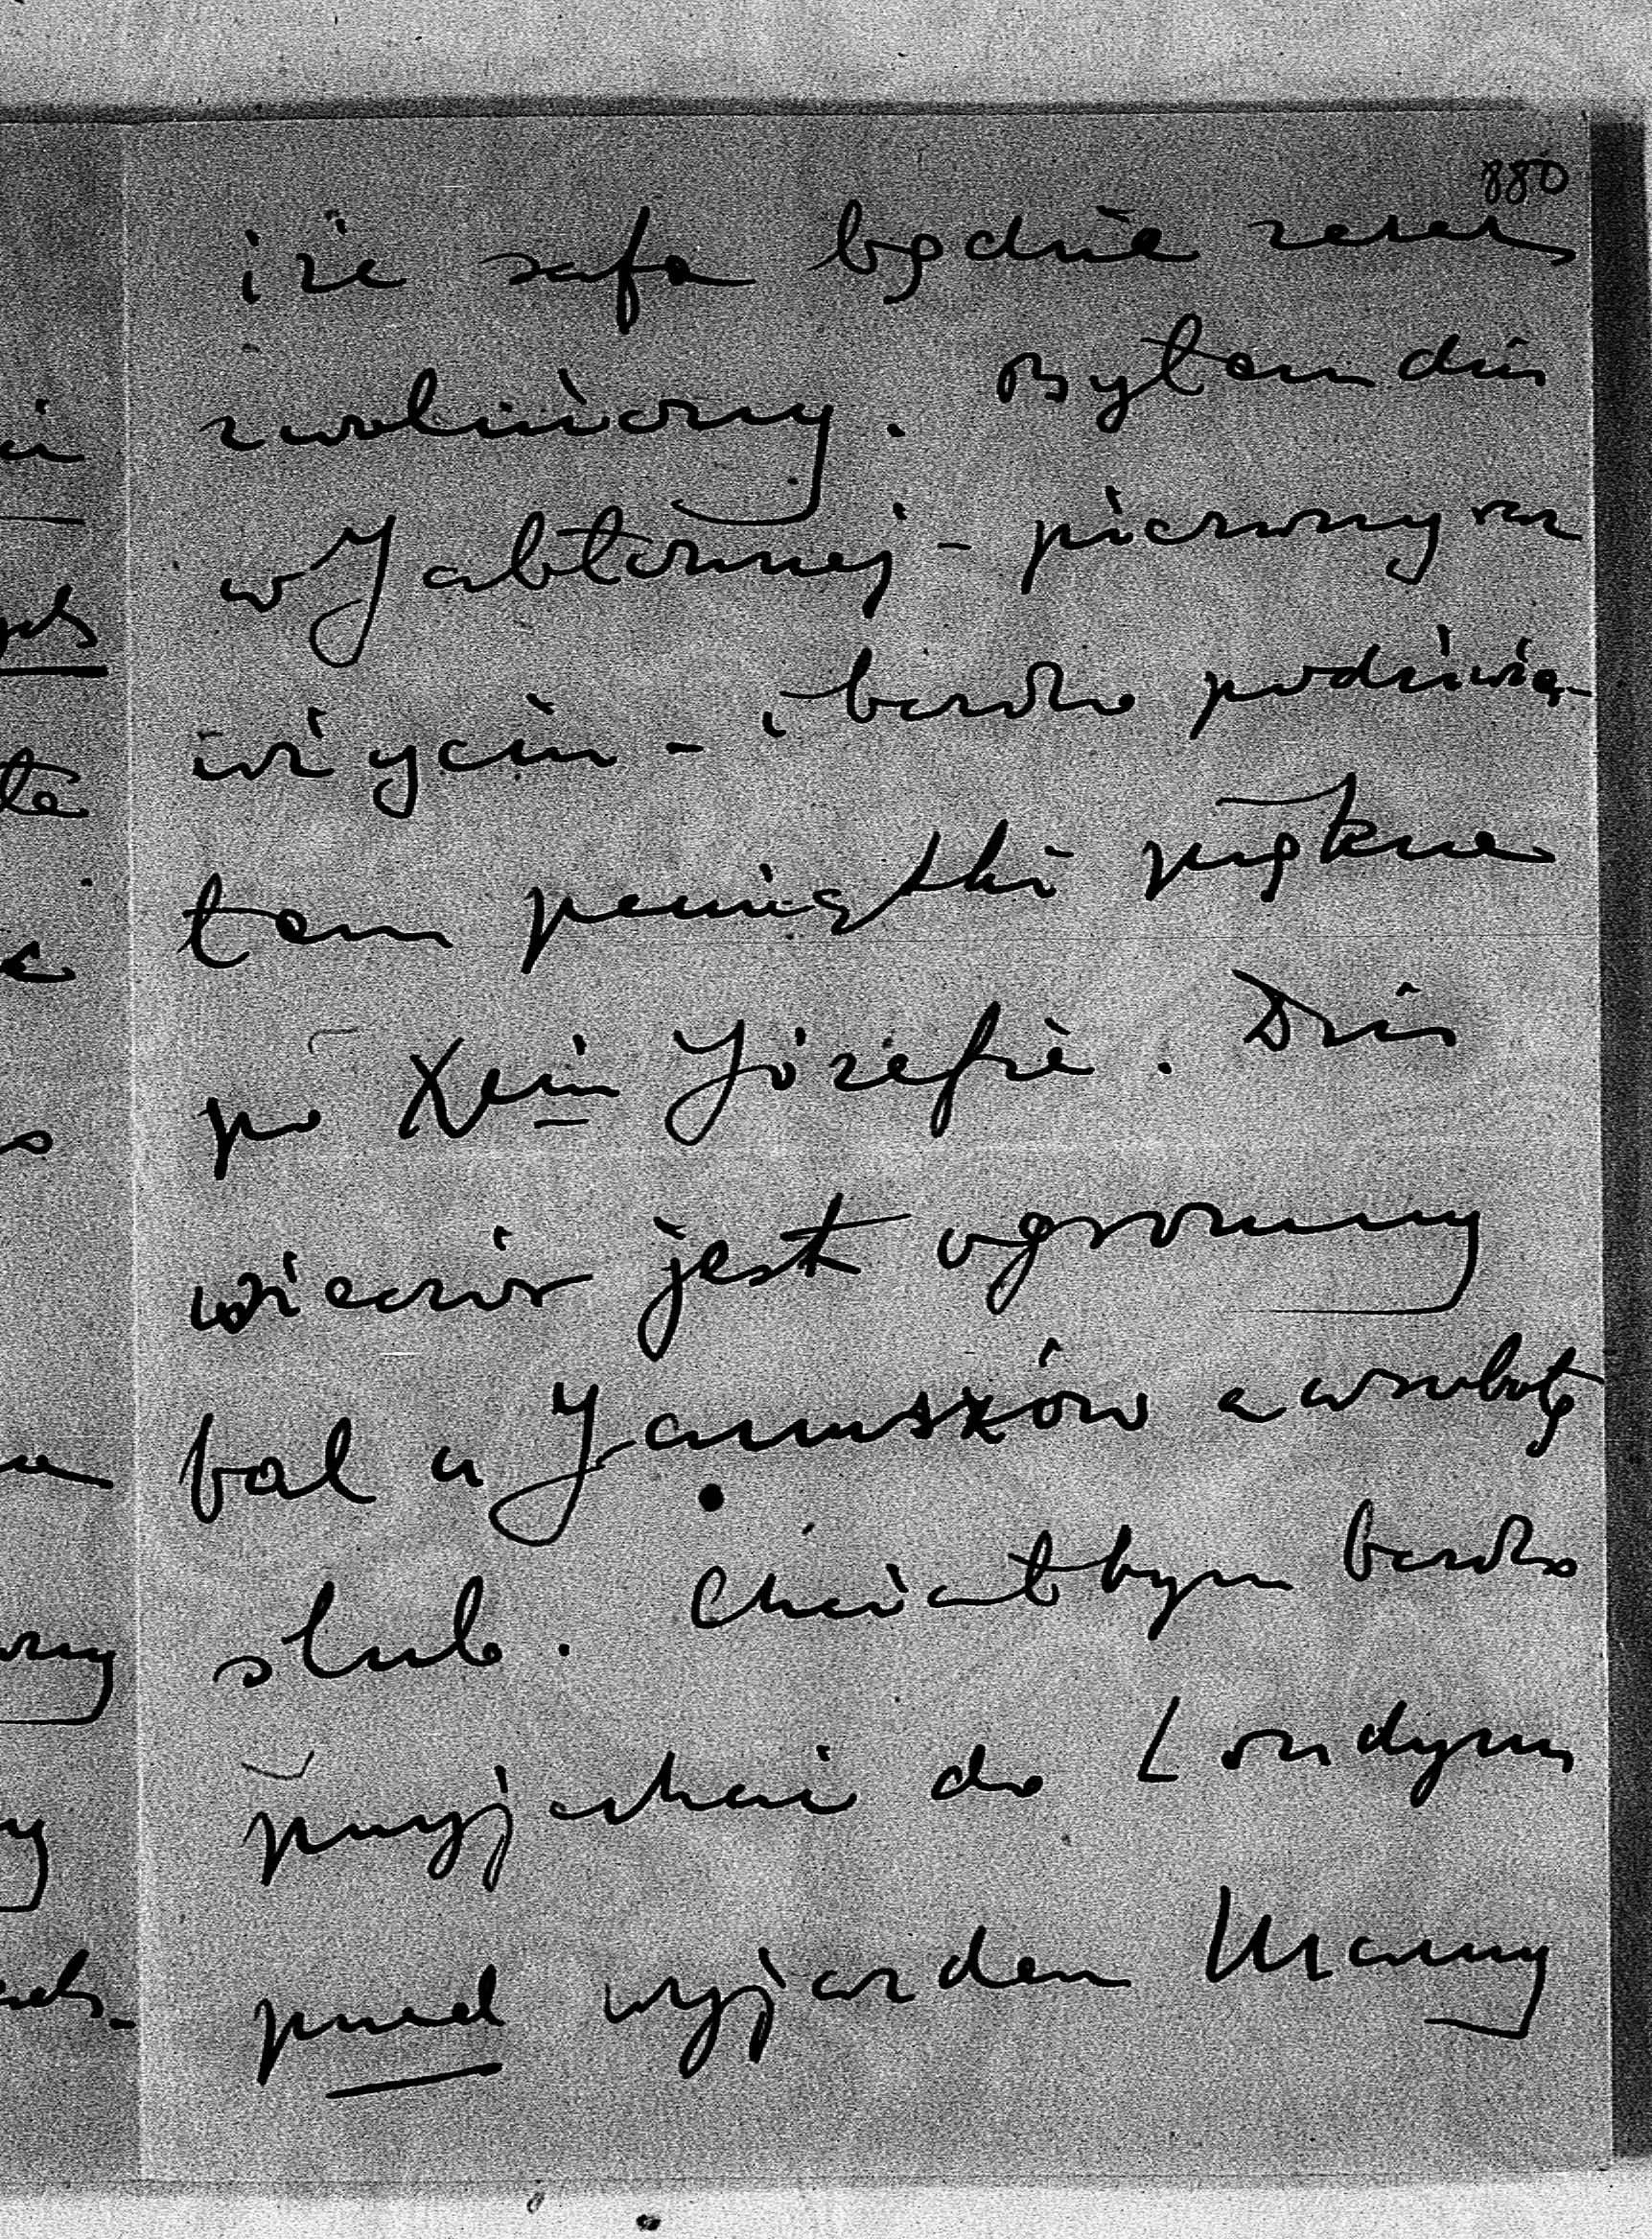 880
i że szefa będzie zaraz
zwolniony. Byłem dziś
w Jabłonnej – pierwszy raz
w życiu – i bardzo podziwia-
łem pamiątki piękne
po Xciu Józefie. Dziś
wieczór jest ogromny
bal u Januszów a w sobotę
ślub. Chciałbym bardzo
przyjechać do Londynu
przed wyjazdem Mamy